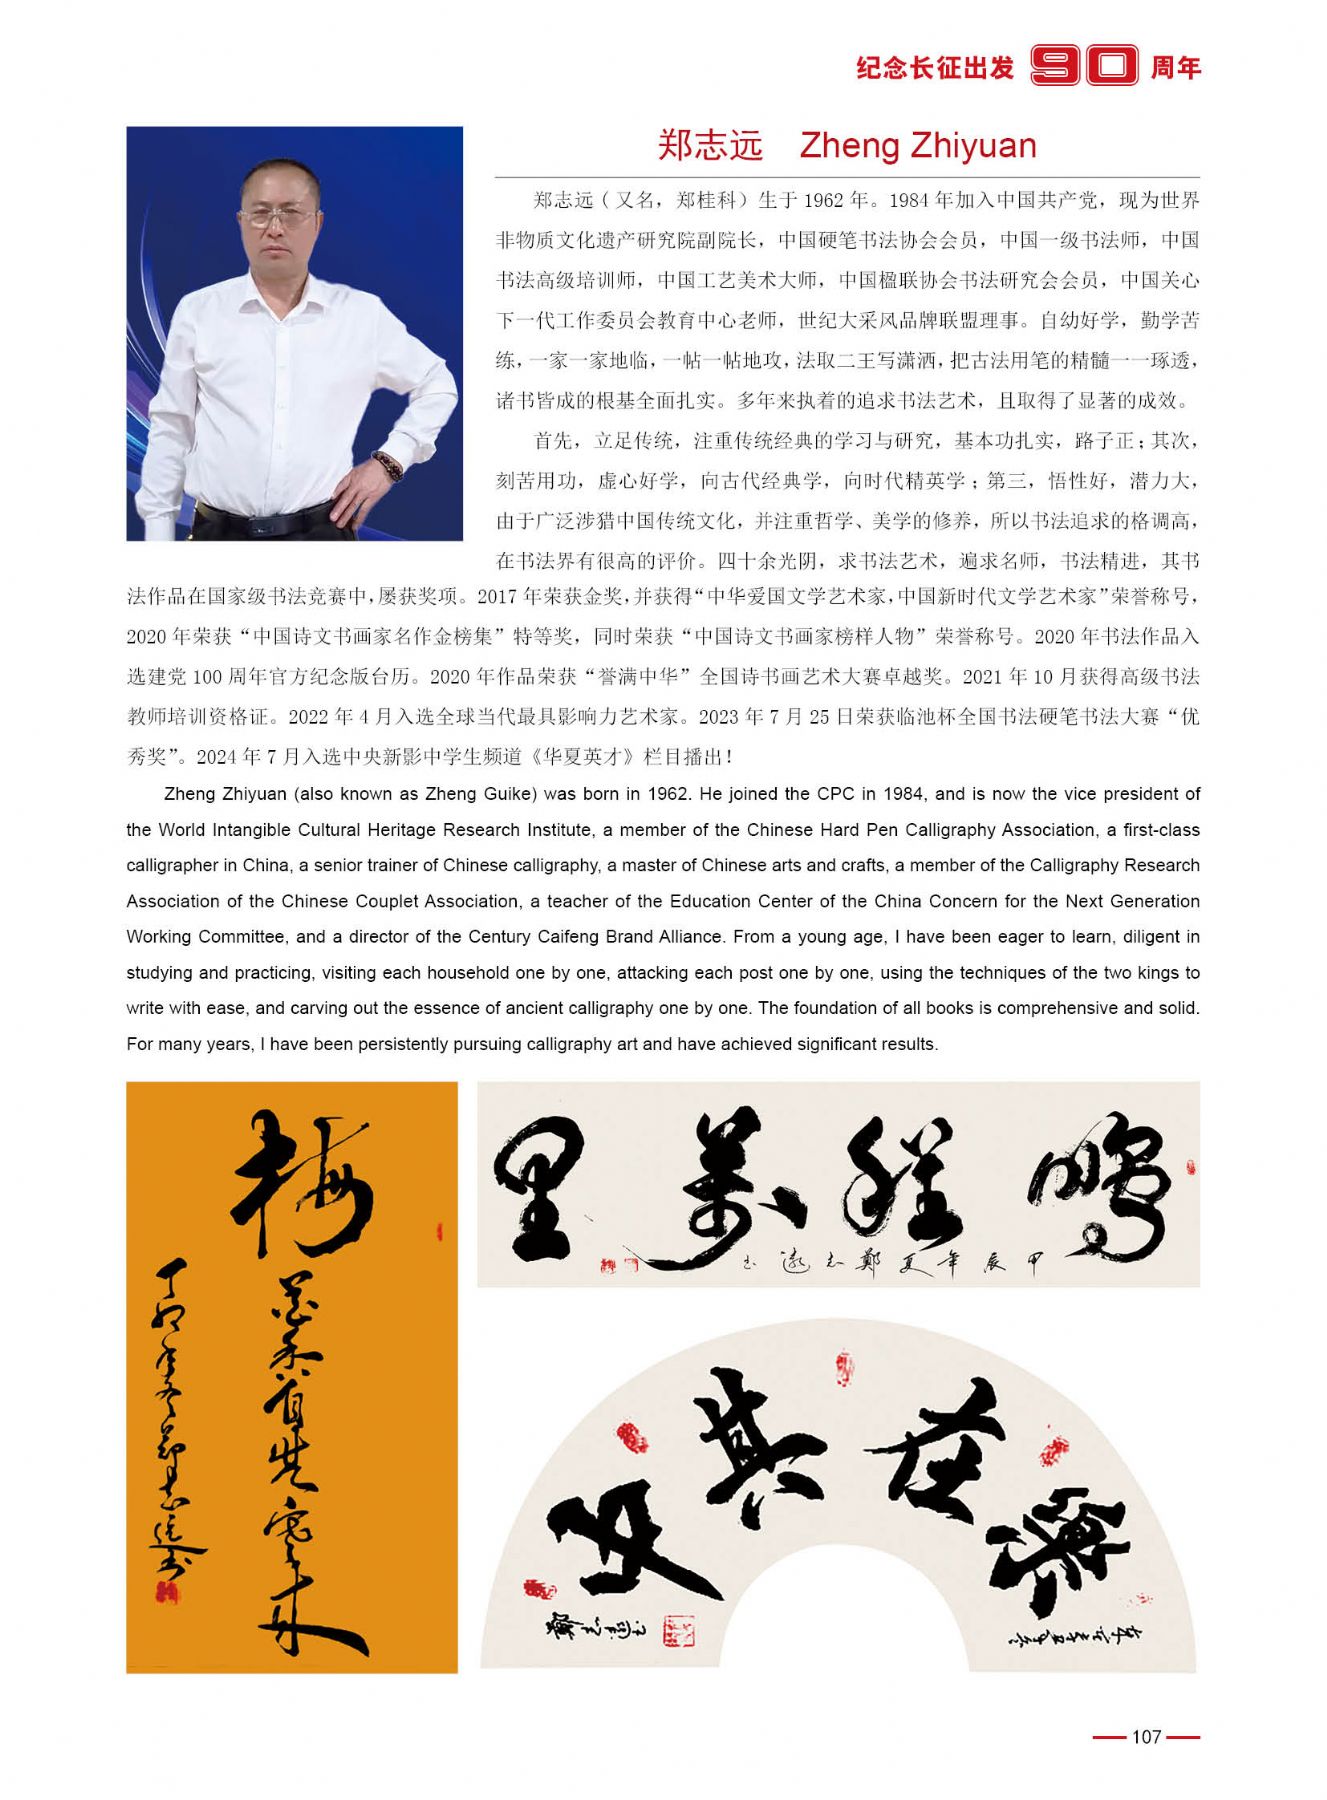 纪念长征出发90周年
郑志远 Zheng Zhiyuan
郑志远（又名，郑桂科）生于 1962 年。1984 年加入中国共产党，现为世界
非物质文化遗产研究院副院长，中国硬笔书法协会会员，中国一级书法师，中国
书法高级培训师，中国工艺美术大师，中国楹联协会书法研究会会员，中国关心
下一代工作委员会教育中心老师，世纪大采风品牌联盟理事。自幼好学，勤学苦
练，一家一家地临，一帖一帖地攻，法取二王写潇洒，把古法用笔的精髓一一琢透，
诸书皆成的根基全面扎实。多年来执着的追求书法艺术，且取得了显著的成效。
首先，立足传统，注重传统经典的学习与研究，基本功扎实，路子正；其次，
刻苦用功，虚心好学，向古代经典学，向时代精英学；第三，悟性好，潜力大，
由于广泛涉猎中国传统文化，并注重哲学、美学的修养，所以书法追求的格调高，
在书法界有很高的评价。四十余光阴，求书法艺术，遍求名师，书法精进，其书
法作品在国家级书法竞赛中，屡获奖项。2017 年荣获金奖，并获得“中华爱国文学艺术家，中国新时代文学艺术家”荣誉称号，
2020 年荣获“中国诗文书画家名作金榜集”特等奖，同时荣获“中国诗文书画家榜样人物”荣誉称号。2020 年书法作品入
选建党 100 周年官方纪念版台历。2020 年作品荣获“誉满中华”全国诗书画艺术大赛卓越奖。2021 年 10 月获得高级书法
教师培训资格证。2022 年 4 月入选全球当代最具影响力艺术家。2023 年 7 月 25 日荣获临池杯全国书法硬笔书法大赛“优
秀奖”。2024 年 7 月入选中央新影中学生频道《华夏英才》栏目播出！
Zheng Zhiyuan (also known as Zheng Guike) was born in 1962. He joined the CPC in 1984, and is now the vice president of
the World Intangible Cultural Heritage Research Institute, a member of the Chinese Hard Pen Calligraphy Association, a first-class
calligrapher in China, a senior trainer of Chinese calligraphy, a master of Chinese arts and crafts, a member of the Calligraphy Research
Association of the Chinese Couplet Association, a teacher of the Education Center of the China Concern for the Next Generation
Working Committee, and a director of the Century Caifeng Brand Alliance. From a young age, I have been eager to learn, diligent in
studying and practicing, visiting each household one by one, attacking each post one by one, using the techniques of the two kings to
write with ease, and carving out the essence of ancient calligraphy one by one. The foundation of all books is comprehensive and solid.
For many years, I have been persistently pursuing calligraphy art and have achieved significant results.
梅
香自苦寒来
鹏程萬里
甲辰年夏鄭志遠书
樂在其中
107